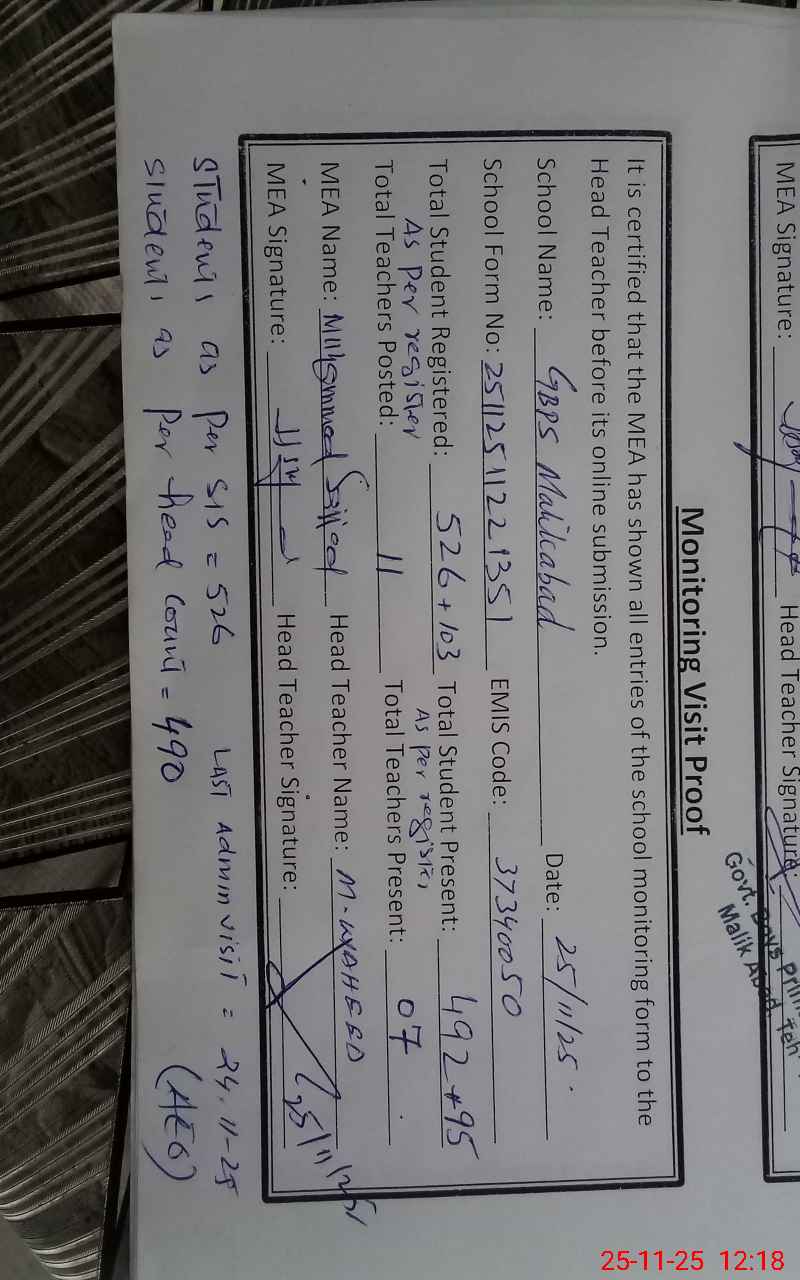 MEA Signature: Head Teacher Signature:
Govt. Boys Prim
Malik Abad Teh
Monitoring Visit Proof
It is certified that the MEA has shown all entries of the school monitoring form to the
Head Teacher before its online submission.
School Name: GBPS Malikabad Date: 25/11/25
School Form No: EMIS Code: 37340050
Total Student Registered: 526+103 Total Student Present: 492+95
As per register As per register
Total Teachers Posted: 11 Total Teachers Present: 07
MEA Name: Muhammad Sajjad Head Teacher Name: M. WAHEED
MEA Signature: Head Teacher Signature: 25/11/25
Students as per SIS = 526 LAST Admin visit = 24-11-25
Students as per head count = 490 (AEO)
25-11-25 12:18